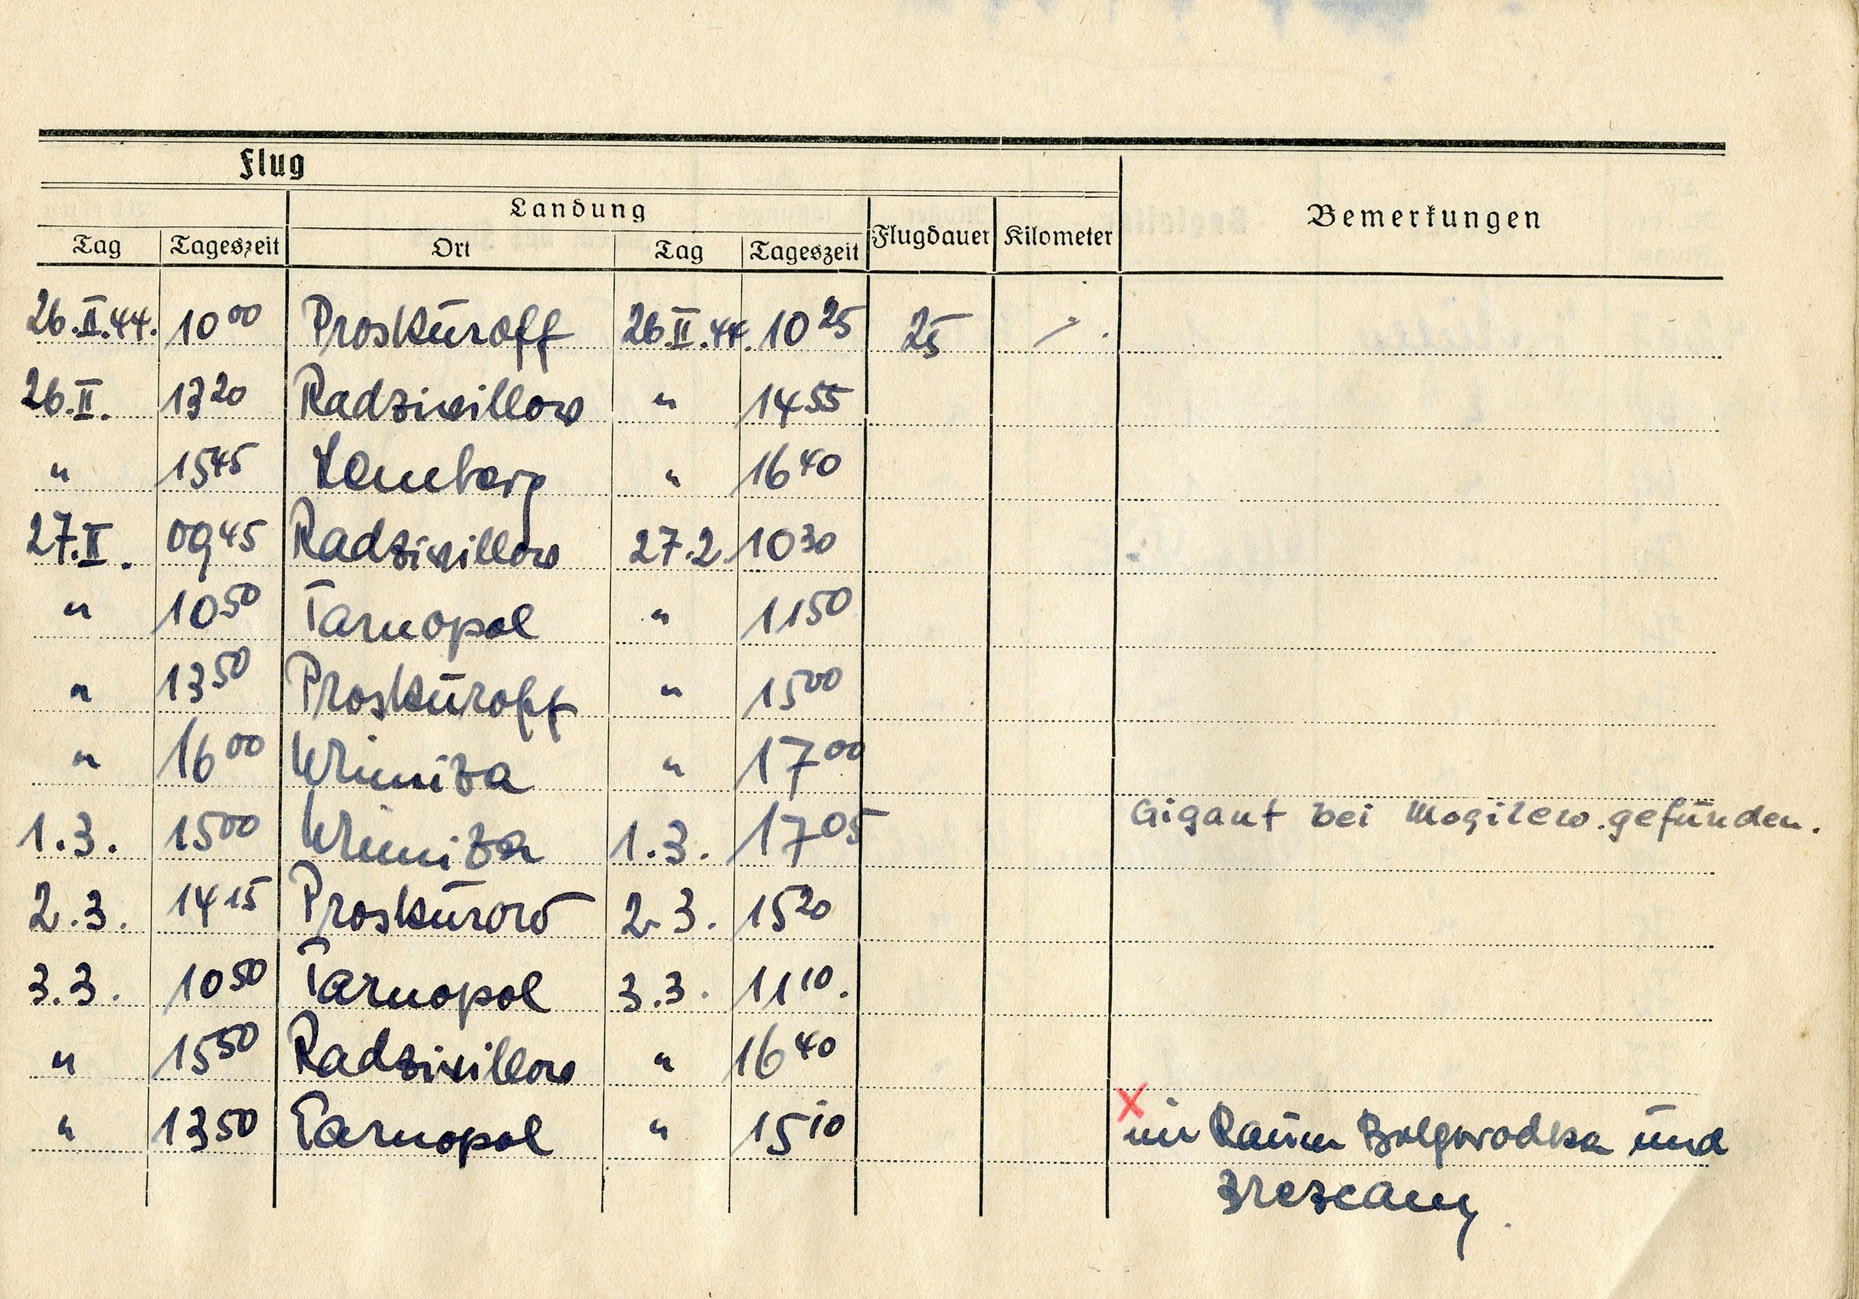 Flug
Landung
Bemerkungen
Tag Tageszeit Ort Tag Tageszeit Flugdauer Kilometer
26.II.44. 10 00 Proskūroff 26.II.44. 10 25 25
26.II. 13 20 Radziwillow " 14 55
" 15 45 Lemberg " 16 40
27.II. 09 45 Radziwillow 27.2. 10 30
" 10 50 Tarnopol " 11 50
" 13 50 Proskūroff " 15 00
" 16 00 Winniza " 17 00
1.3. 15 00 Winniza 1.3. 17 05 Gigant bei Mogilew gefūnden.
2.3. 14 15 Proskūrow 2.3. 15 20
3.3. 10 50 Tarnopol 3.3. 11 10.
" 15 50 Radziwillow " 16 40
" 13 50 Tarnopol " 15 10 x im Raūm ūnd